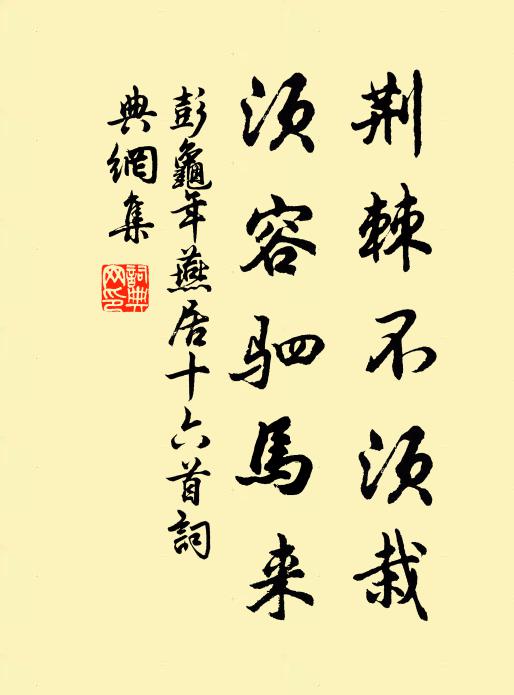 荆棘不须栽
须容驷馬来
彭龜年燕居十六首詞
典網集
詞典
网印